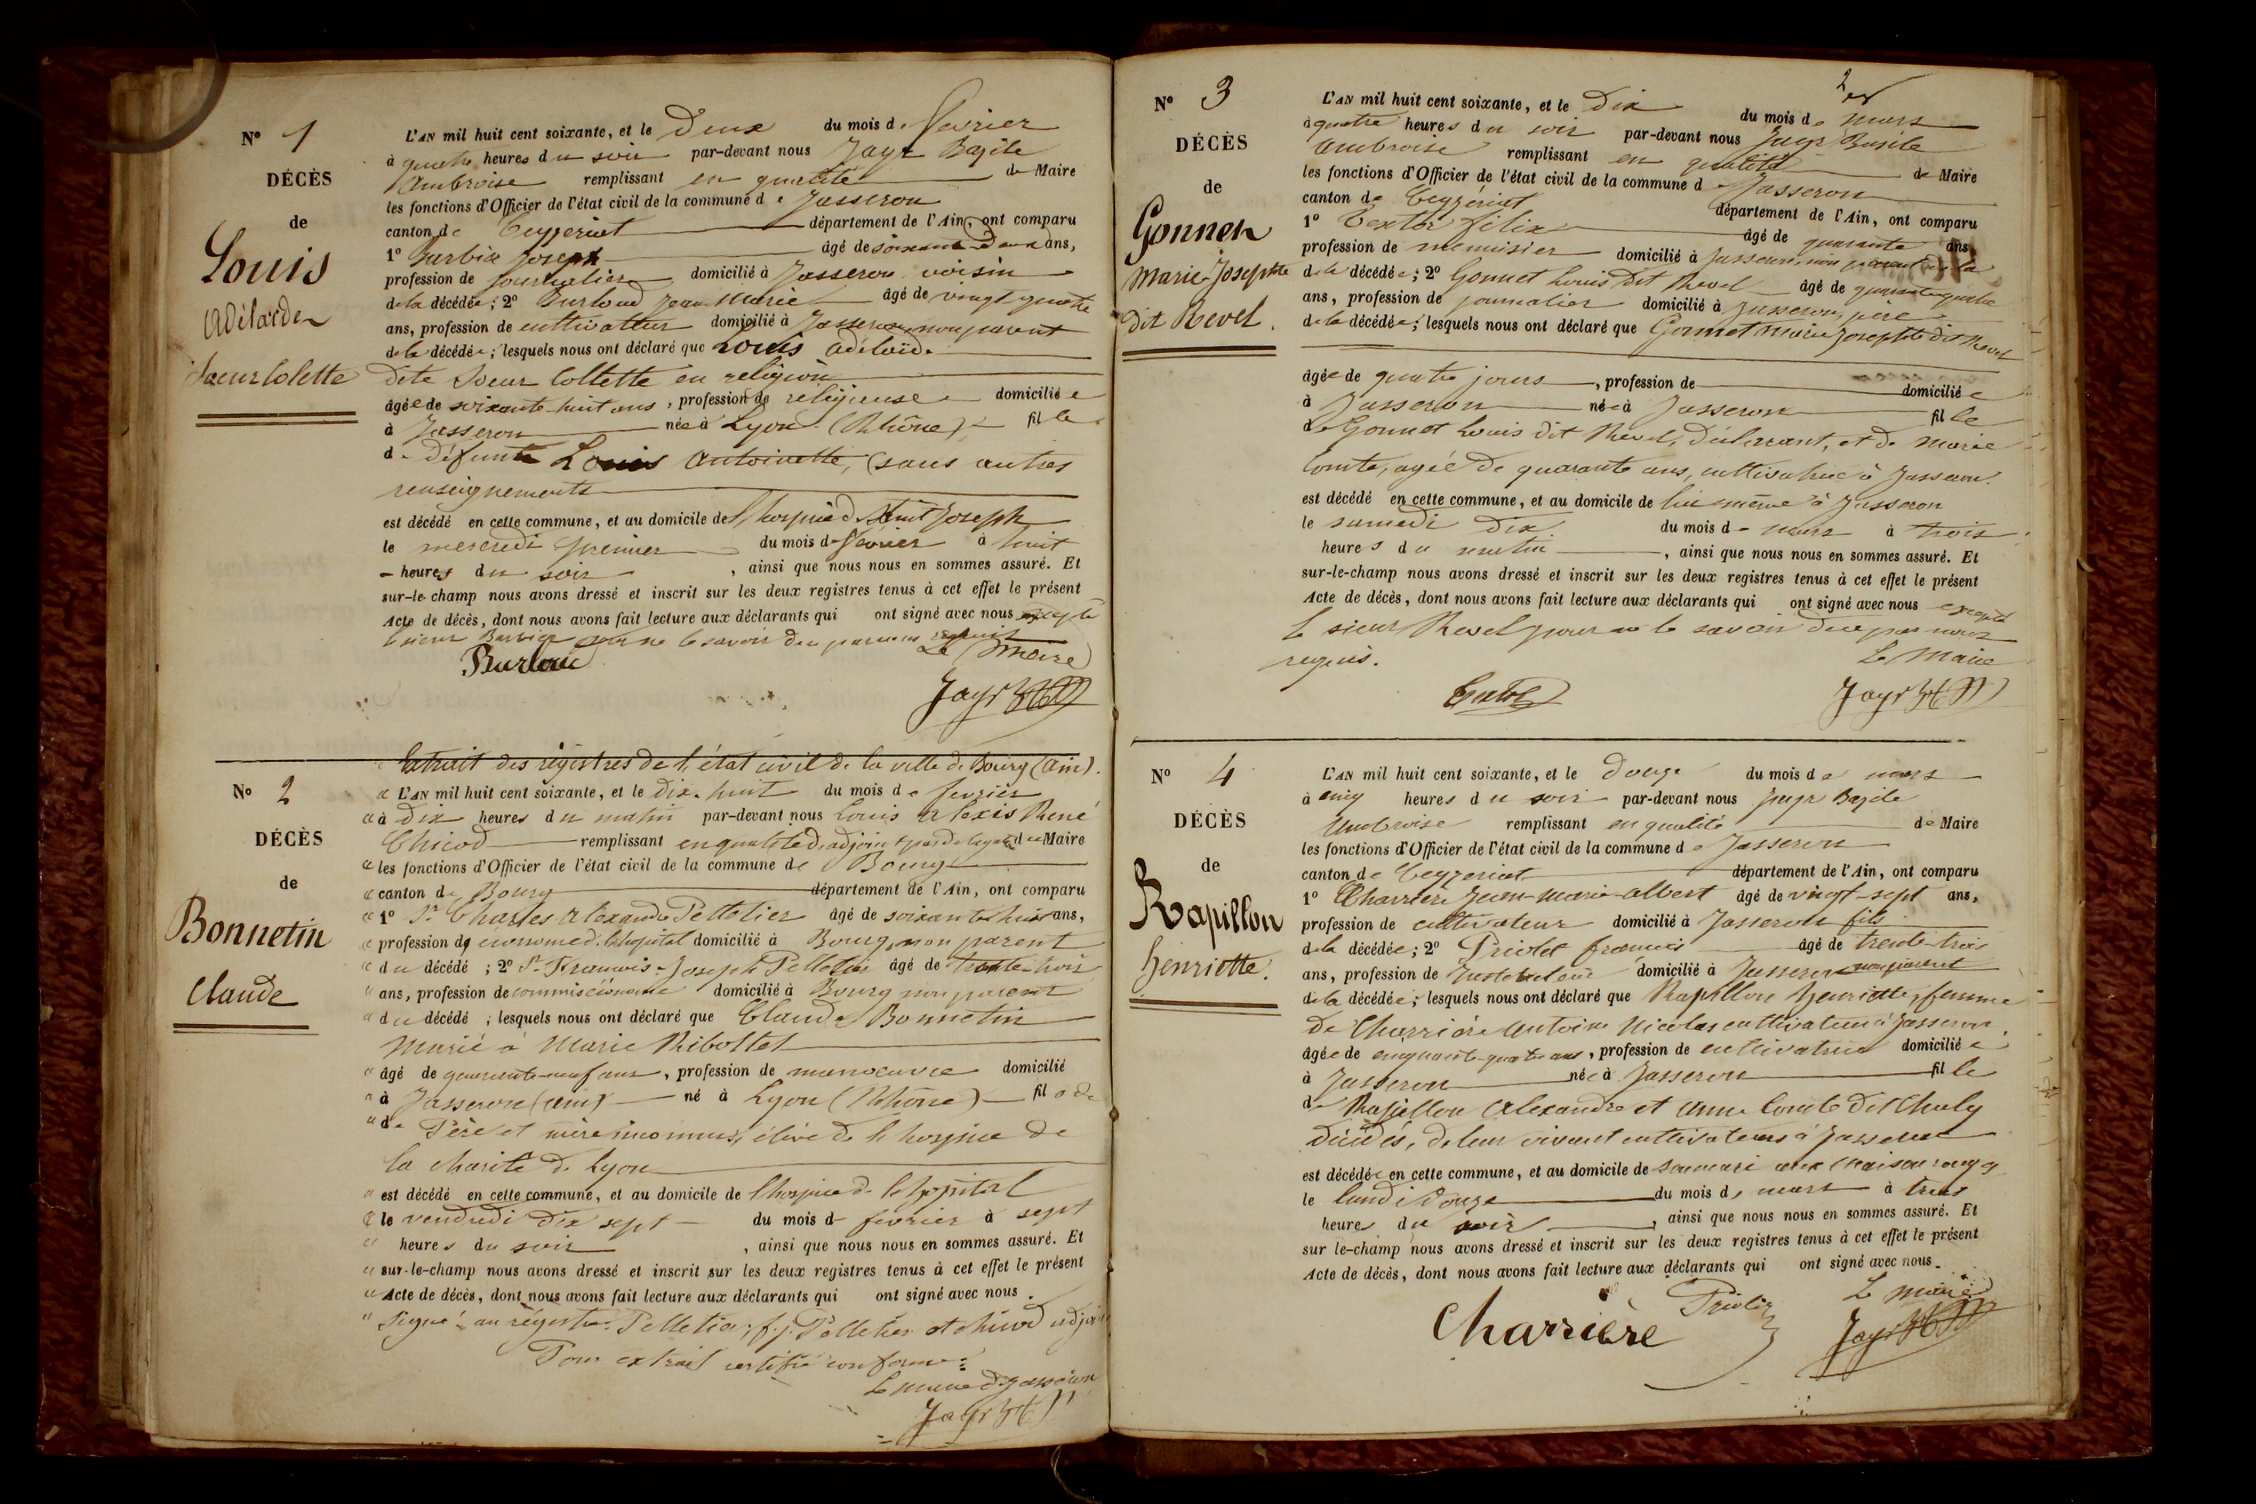 N° 1
DÉCÈS
de
Louis
Adélaïde
Soeur Colette
L'AN mil huit cent soixante, et le Deux du mois de février
à quatre heures du soir par-devant nous Jayr Bazile
Ambroise remplissant en qualité de Maire
les fonctions d'Officier de l'état civil de la commune de Jasseron
canton de Ceyzeriat département de l'Ain, ont comparu
1° Barbier Joseph âgé de soixante Deux ans,
profession de journalier domicilié à Jasseron voisin
de la décédée; 2° Burloud Jean Marie âgé de vingt quatre
ans, profession de cultivateur domicilié à Jasseron, non parent
de la décédée; lesquels nous ont déclaré que Louis Adélaïde
dite Soeur Collette en religion
âgée de soixante-huit ans, profession de religieuse domiciliée
à Jasseron née à Lyon (Rhône) fille
de défunte Louis Antoinette, (sans autres
renseignements
est décédé en cette commune, et au domicile de l'hospice de Saint Joseph
le mercredi premier du mois de février à huit
heures du soir, ainsi que nous nous en sommes assuré. Et
sur-le-champ nous avons dressé et inscrit sur les deux registres tenus à cet effet le présent
Acte de décès, dont nous avons fait lecture aux déclarants qui ont signé avec nous excepté
le sieur Barbier pour ne le savoir de ce par nous requis
Le Maire
Burloud
Jayr
N° 2
DÉCÈS
de
Bonnetin
Claude
Extrait des registres de l'état civil de la ville de Bourg (Ain).
L'AN mil huit cent soixante, et le dix-huit du mois de fevrier
à dix heures du matin par-devant nous Louis Alexis René
Chicod remplissant en qualité d'adjoint du Maire
les fonctions d'Officier de l'état civil de la commune de Bourg
canton de Bourg département de l'Ain, ont comparu
1° Sr Charles Alexandre Pelletier âgé de soixante huit ans,
profession de économe de l'hôpital domicilié à Bourg, non parent
du décédé; 2° Sr François-Joseph Pelletier âgé de trente-trois
ans, profession de commissionnaire domicilié à Bourg non parent
du décédé; lesquels nous ont déclaré que Claude Bonnetin
Marié à Marie Ribollet
âgé de quarante-neuf ans, profession de manoeuvre domicilié
à Jasseron (Ain) né à Lyon (Rhône) fils de
de Père et mère inconnus, élève de l'hospice de
la charité de Lyon
est décédé en cette commune, et au domicile de l'hospice de l'hôpital
le vendredi dix sept du mois de février à sept
heures du soir, ainsi que nous nous en sommes assuré. Et
sur-le-champ nous avons dressé et inscrit sur les deux registres tenus à cet effet le présent
Acte de décès, dont nous avons fait lecture aux déclarants qui ont signé avec nous.
Signé: au régistre: Pelletier, f. j. Pelletier et chicod adjoint
Pour extrait certifié conforme:
Le maire de Jasseron
Jayr
N° 3
DÉCÈS
de
Gonnet
Marie-Josephte
dit Revel.
L'AN mil huit cent soixante, et le Dix du mois de mars
à quatre heures du soir par-devant nous Jayr Basile
Ambroise remplissant en qualité de Maire
les fonctions d'Officier de l'état civil de la commune de Jasseron
canton de Ceyzériat département de l'Ain, ont comparu
1° Textor félix âgé de quarante ans,
profession de menuisier domicilié à Jasseron, non parent de la
de la décédée; 2° Gonnet Louis dit Revel âgé de quarante quatre
ans, profession de journalier domicilié à Jasseron, père
de la décédée; lesquels nous ont déclaré que Gonnet Marie Josephte dit Revel
âgée de quatre jours, profession de domiciliée
à Jasseron née à Jasseron fille
de Gonnet Louis dit Revel, déclarant, et de Marie
Comte, agée de quarante ans, cultivatrice à Jasseron.
est décédé en cette commune, et au domicile de lui même à Jasseron
le samedi dix du mois de mars à trois
heures du matin, ainsi que nous nous en sommes assuré. Et
sur-le-champ nous avons dressé et inscrit sur les deux registres tenus à cet effet le présent
Acte de décès, dont nous avons fait lecture aux déclarants qui ont signé avec nous excepté
le sieur Revel pour ne le savoir de ce par nous
requis.
Le Maire
Textor
Jayr
N° 4
DÉCÈS
de
Rapillon
henriette.
L'AN mil huit cent soixante, et le douze du mois de mars
à cinq heures du soir par-devant nous Jayr Bazile
Ambroise remplissant en qualité de Maire
les fonctions d'Officier de l'état civil de la commune de Jasseron
canton de Ceyzeriat département de l'Ain, ont comparu
1° Charrière Jean-marie-albert âgé de vingt-sept ans,
profession de cultivateur domicilié à Jasseron fils
de la décédée; 2° Priolet françois âgé de trente-trois
ans, profession de domicilié à Jasseron non parent
de la décédée; lesquels nous ont déclaré que Rapillon henriette, femme
de Charrière Antoine Nicolas cultivateur à Jasseron.
âgée de cinquante-quatre ans, profession de cultivatrice domiciliée
à Jasseron née à Jasseron fille
de Rapillon Alexandre et Anne Comte dit Chuly
décédés, de leur vivant cultivateurs à Jasseron
est décédée en cette commune, et au domicile de son mari
le lundi douze du mois de mars à trois
heures du soir, ainsi que nous nous en sommes assuré. Et
sur le-champ nous avons dressé et inscrit sur les deux registres tenus à cet effet le présent
Acte de décès, dont nous avons fait lecture aux déclarants qui ont signé avec nous.
Le Maire
Charrière
Jayr